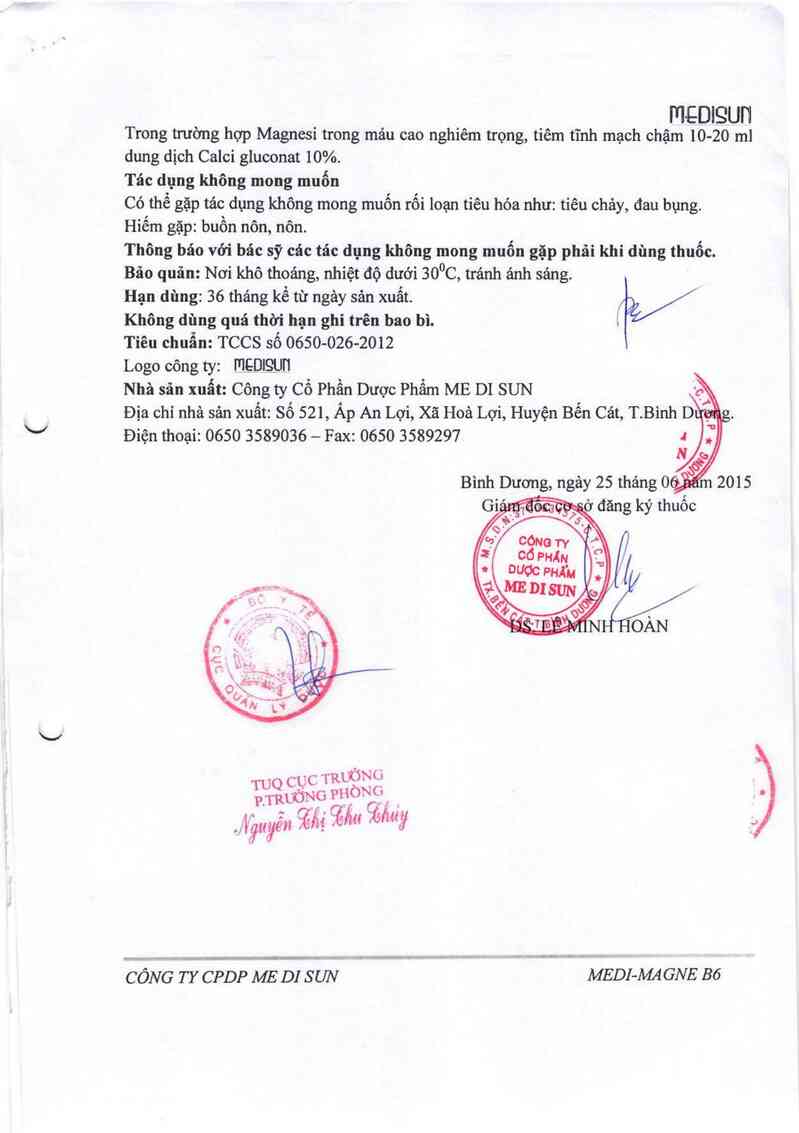 MEDISUN
Trong trường hợp Magnesi trong máu cao nghiêm trọng, tiêm tĩnh mạch chậm 10-20 ml
dung dịch Calci gluconat 10%.
Tác dụng không mong muốn
Có thể gặp tác dụng không mong muốn rối loạn tiêu hóa như: tiêu chảy, đau bụng.
Hiếm gặp: buồn nôn, nôn.
Thông báo với bác sỹ các tác dụng không mong muốn gặp phải khi dùng thuốc.
Bảo quản: Nơi khô thoáng, nhiệt độ dưới 30⁰C, tránh ánh sáng.
Hạn dùng: 36 tháng kể từ ngày sản xuất.
Không dùng quá thời hạn ghi trên bao bì.
Tiêu chuẩn: TCCS số 0650-026-2012
Logo công ty: MEDISUN
Nhà sản xuất: Công ty Cổ Phần Dược Phẩm ME DI SUN
Địa chỉ nhà sản xuất: Số 521, Ấp An Lợi, Xã Hoà Lợi, Huyện Bến Cát, T.Bình Dương.
Điện thoại: 0650 3589036 – Fax: 0650 3589297
Bình Dương, ngày 25 tháng 06 năm 2015
Giám đốc cơ sở đăng ký thuốc
CÔNG TY
CỔ PHẦN
DƯỢC PHẨM
ME DI SUN
TX.BẾN CÁT-T.BÌNH DƯƠNG
DS. LÊ MINH HOÀN
BỘ Y TẾ
CỤC QUẢN LÝ DƯỢC
TUQ CỤC TRƯỞNG
P.TRƯỞNG PHÒNG
Nguyễn Thị Thu Thủy
CÔNG TY CPDP ME DI SUN
MEDI-MAGNE B6